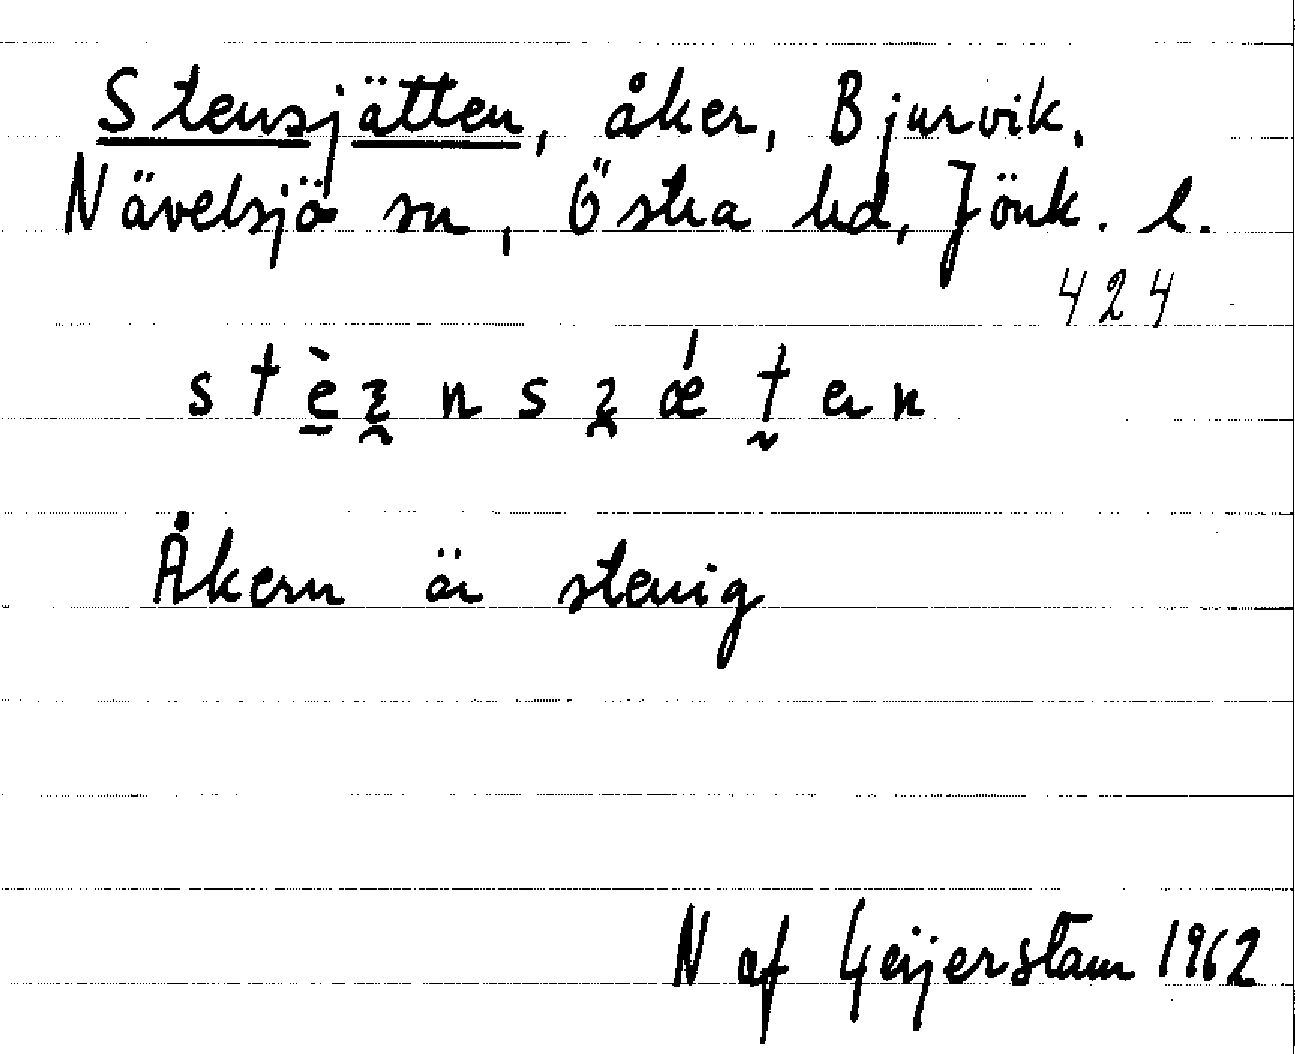 Stensjätten, åker, Bjurvik,
Nävelsjö sn, Östra hd, Jönk. l.
424
Åkern är stenig
N af Geijerstam 1962